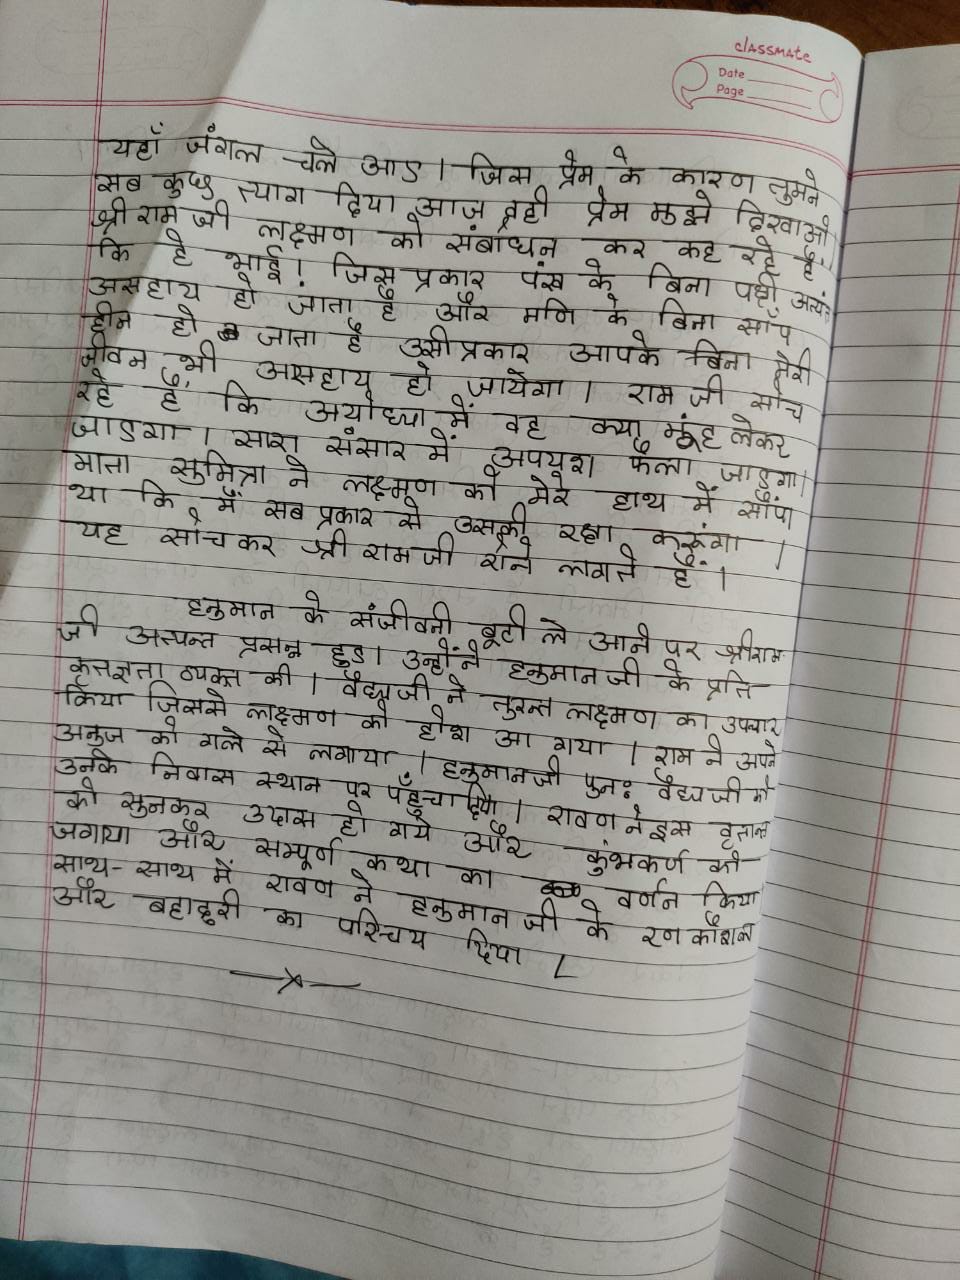 classmate
Date
Page
यहाँ जंगल चले आए। जिस प्रेम के कारण तुमने
सब कुछ त्याग दिया आज वही प्रेम मुझे दिखाओ
श्री राम जी लक्ष्मण को संबोधन कर कह रहे हैं
कि हे भाई! जिस प्रकार पंख के बिना पक्षी अत्यंत
असहाय हो जाता है और मणि के बिना साँप
हीन हो जाता है उसी प्रकार आपके बिना मेरी
जीवन भी असहाय हो जायेगा। राम जी सोच
रहे हैं कि अयोध्या में वह क्या मुंह लेकर
जाएगा। सारा संसार में अपयश फैला जाएगा।
माता सुमित्रा ने लक्ष्मण को मेरे हाथ में सौंपा
था कि मैं सब प्रकार से उसकी रक्षा करूंगा।
यह सोचकर श्री रामजी रोने लगते हैं।
हनुमान के संजीवनी बूटी ले आने पर श्रीराम
जी अत्यन्त प्रसन्न हुए। उन्होंने हनुमान जी के प्रति
कृतज्ञता व्यक्त की। वैद्यजी ने तुरन्त लक्ष्मण का उपचार
किया जिससे लक्ष्मण को होश आ गया। राम ने अपने
अनुज को गले से लगाया। हनुमानजी पुनः वैद्य जी को
उनके निवास स्थान पर पहुँचा दिया। रावण ने इस वृत्तान्त
को सुनकर उदास हो गये और कुंभकर्ण को
जगाया और सम्पूर्ण कथा का वर्णन किया
साथ-साथ में रावण ने हनुमान जी के रण कौशल
और बहादुरी का परिचय दिया।